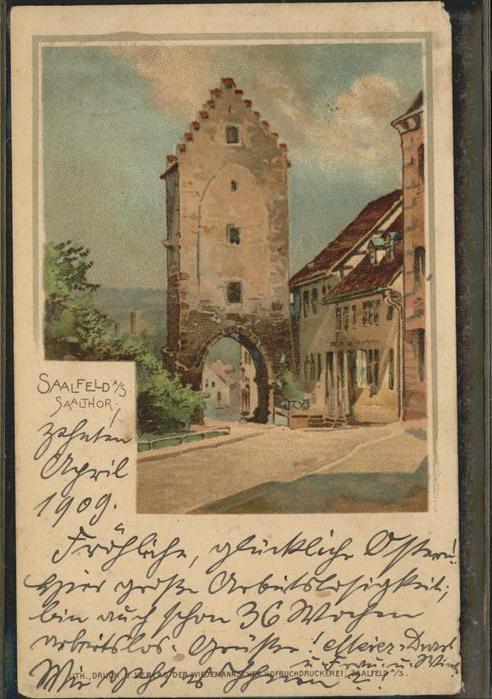 SAALFELD A/S.
SAALTHOR.
zehnten
April
1909.
Fröhliche, glückliche Ostern!
Hier große Arbeitslosigkeit;
bin auch schon 36 Wochen
arbeitslos. Grüße!
u. Frau u.
Wie geht's Ihnen
LITH., DRUCK U. VERLAG DER WIEDEMANN'SCHEN HOFBUCHDRUCKEREI, SAALFELD A/S.